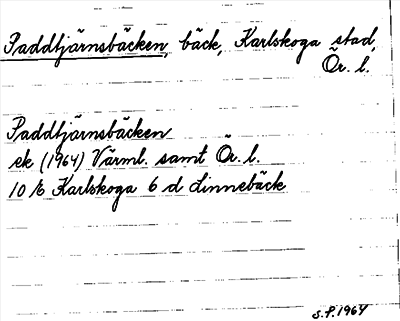 Paddtjärnsbäcken, bäck, Karlskoga stad,
Ör. l.
Paddtjärnsbäcken
ek (1964) Värml. samt Ör. l.
10 E Karlskoga 6 d Linnebäck
S.P. 1964